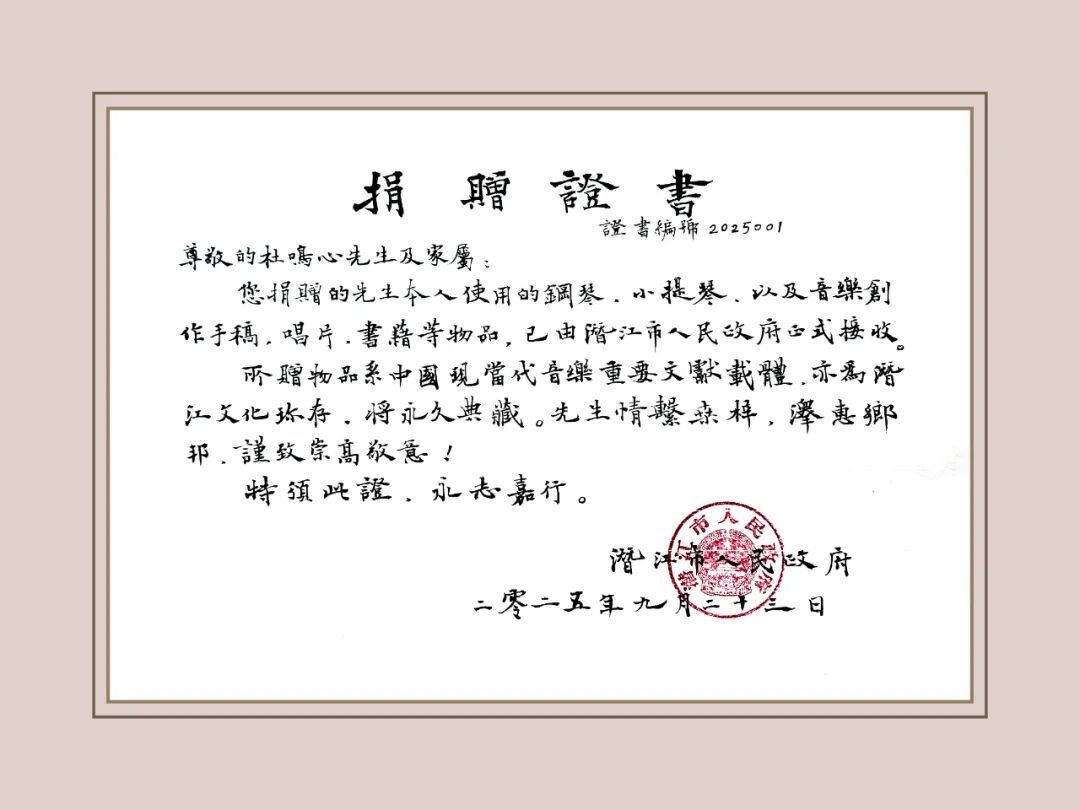 捐贈證書
證書編號 2025001
尊敬的杜鳴心先生及家屬：
您捐贈的先生本人使用的鋼琴、小提琴、以及音樂創
作手稿、唱片、書籍等物品，已由潛江市人民政府正式接收。
所贈物品系中國現當代音樂重要文獻載體、亦為潛
江文化珍存，將永久典藏。先生情繫桑梓，澤惠鄉
邦、謹致崇高敬意！
特頒此證、永志嘉行。
潛江市人民政府
二零二五年九月二十三日
潜江市人民政府